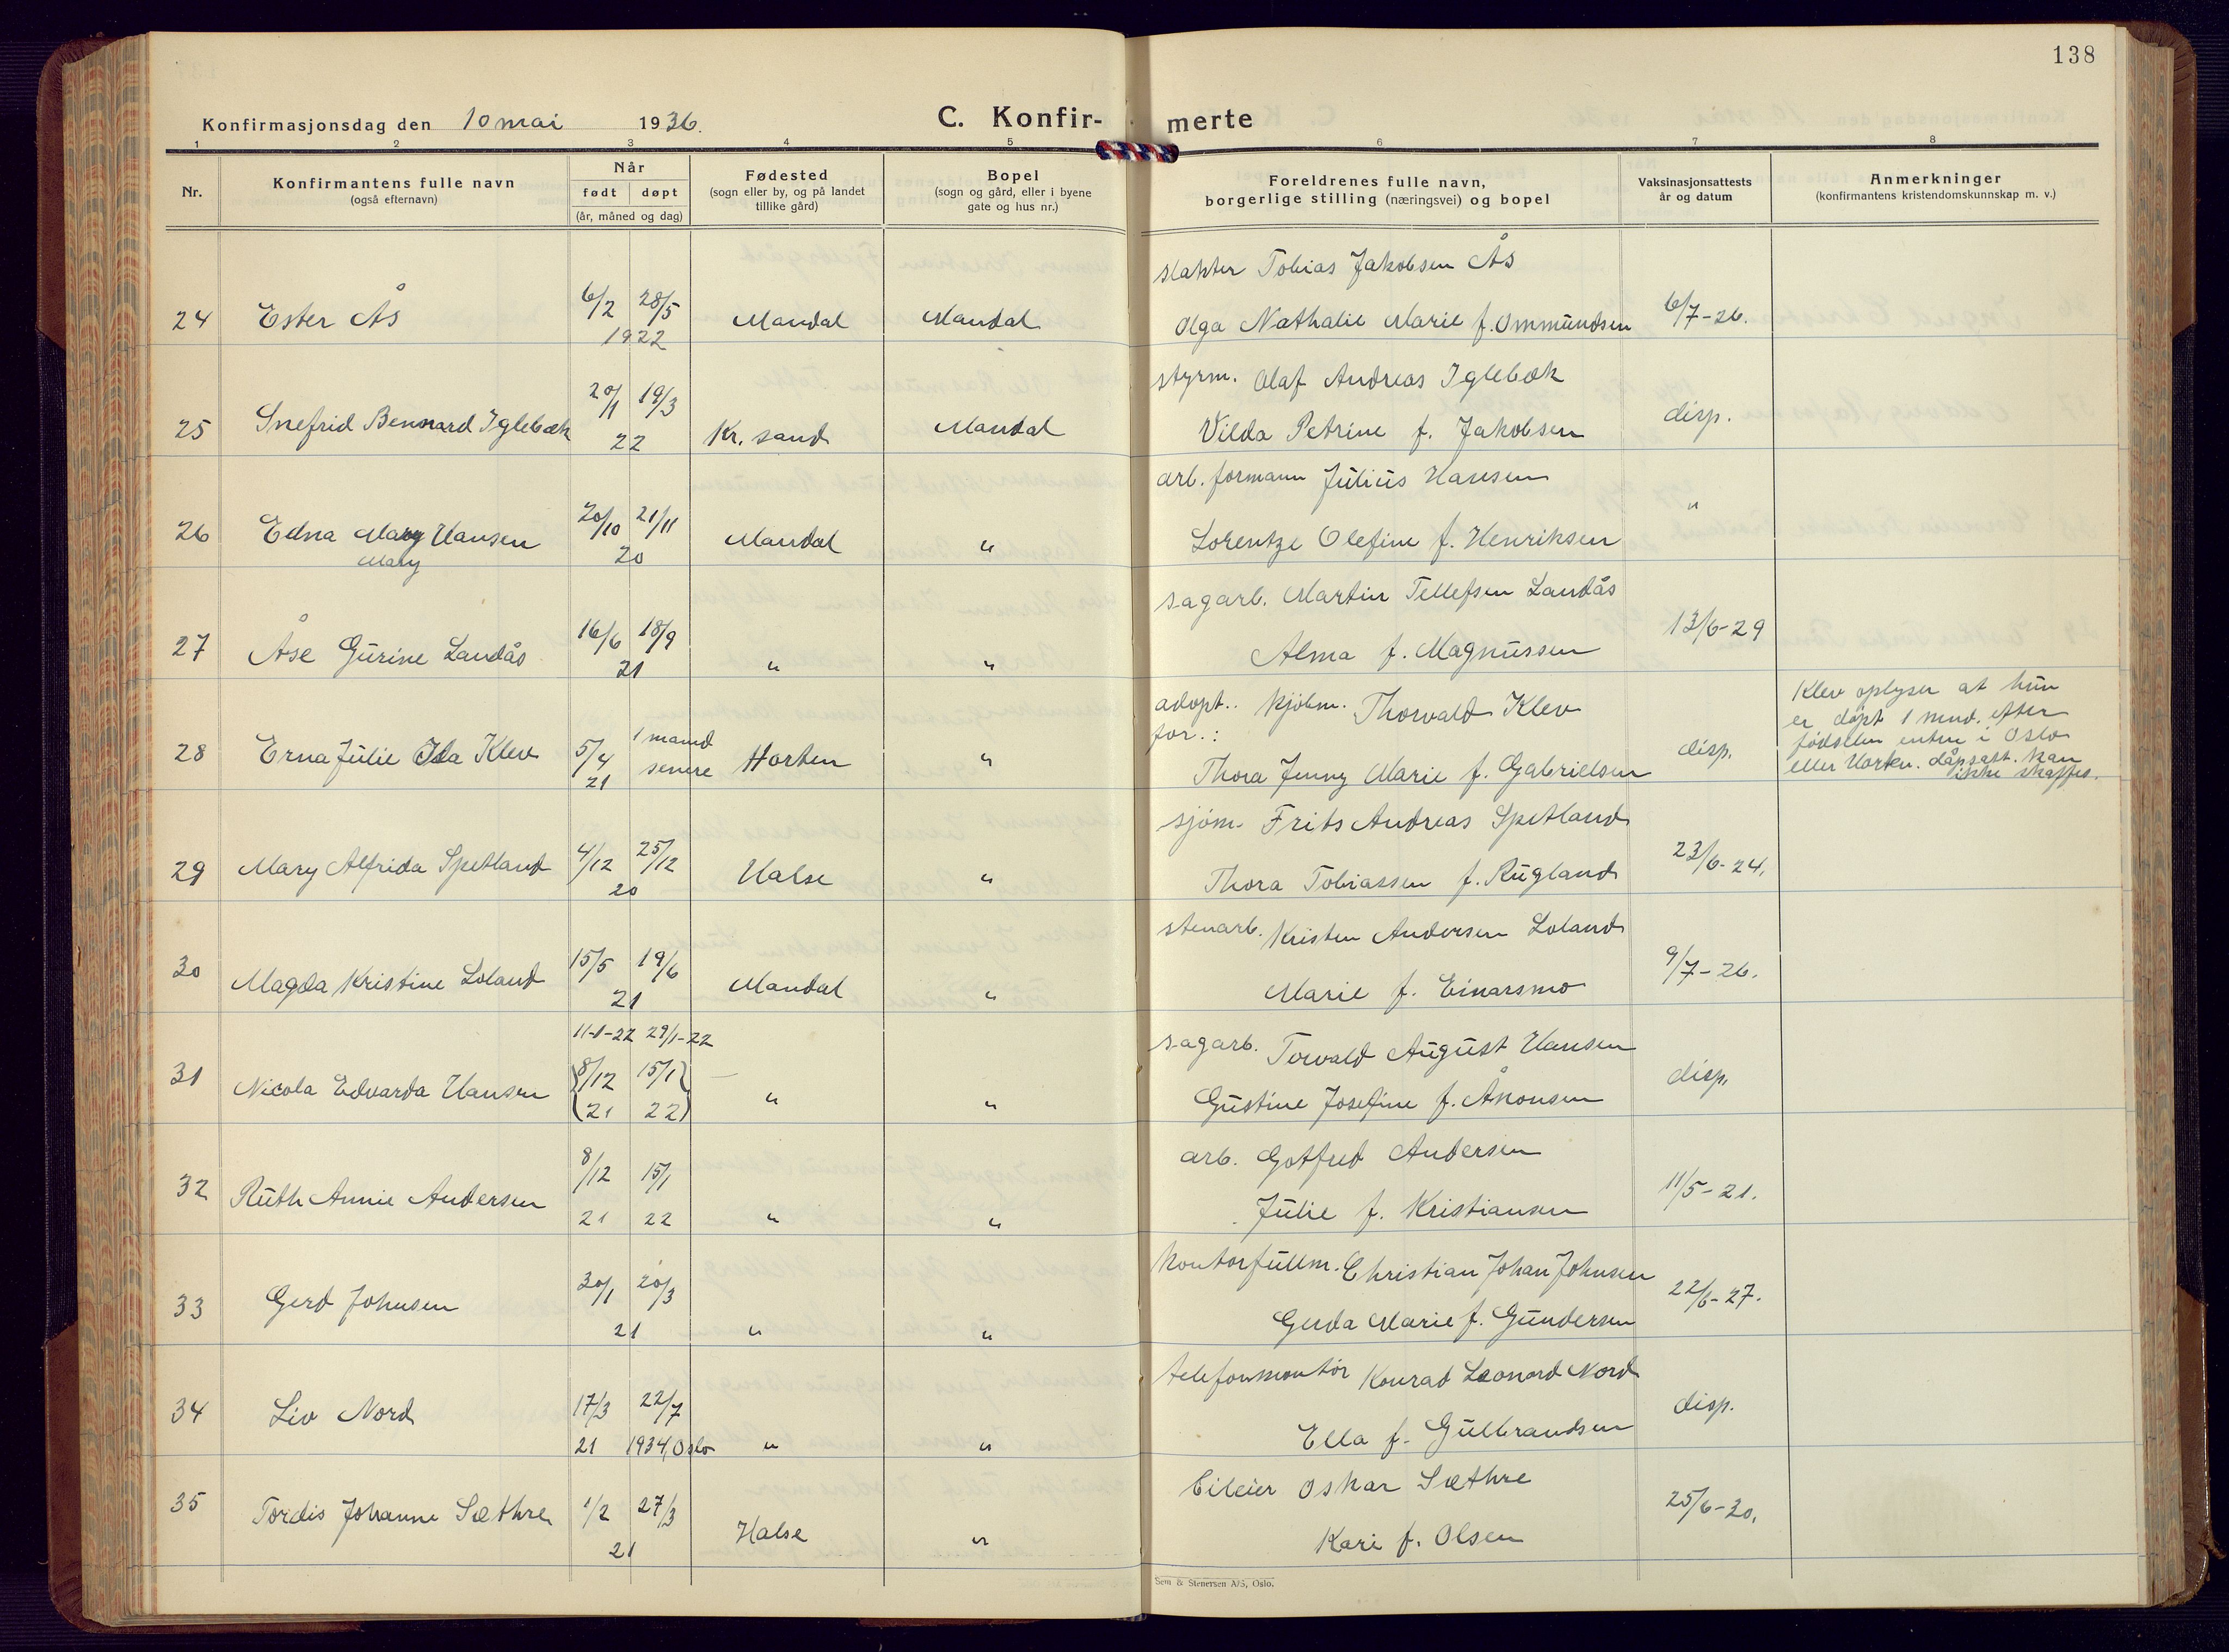 138
Konfirmasjonsdag den 10 mai 1936.
C. Konfir- merte
1 2 3 4 5 6 7 8
Nr.
Konfirmantens fulle navn
(også efternavn)
Når
født døpt
(år, måned og dag)
Fødested
(sogn eller by, og på landet
tillike gård)
Bopel
(sogn og gård, eller i byene
gate og hus nr.)
Foreldrenes fulle navn,
borgerlige stilling (næringsvei) og bopel
Vaksinasjonsattests
år og datum
Anmerkninger
(konfirmantens kristendomskunnskap m. v.)
slakter Tobias Jakobsen Ås
24 Ester Ås 6/2 28/5 Mandal Mandal Olga Nathalie Marie f. Ommundsen 6/7-26.
1922
styrm. Olaf Andreas Iglebæk
20/1 19/3
25 Snefrid Bennard Iglebæk Kr. sand Mandal Vilda Petrine f. Jakobsen disp.
22
arb. formann Julius Hansen
26 Edna Mary Hansen 20/10 21/11 Mandal " Lorentze Olefine f. Henriksen "
Mary 20
sagarb. Martin Tellefsen Landås
27 Åse Gurine Landås 16/6 18/9 " " Alma f. Magnussen 13/6-29
21
adopt. kjøbm. Thorvald Klev
for.:
28 Erna Julie Ida Klev 5/4 1 maned senere Horten " Thora Jenny Marie f. Gabrielsen disp.
21
Klev oplyser at hun
er døpt 1 mnd. efter
fødselen enten i Oslo
eller Horten. Dåpsatt. kan
ikke skaffes.
sjøm. Frits Andreas Spetland
29 Mary Alfrida Spetland 4/12 25/12 Halse " Thora Tobiassen f. Rugland 23/6-24.
20
stenarb. Kristen Andersen Loland
30 Magda Kristine Loland 15/5 19/6 Mandal " Marie f. Einarsmo 9/7-26.
21
11-1-22 29/1-22
sagarb. Torvald August Hansen
31 Nicola Edvarda Hansen (8/12 15/1) " " Gustine Josefine f. Åkonsen disp.
(21 22)
arb. Gotfred Andersen
32 Ruth Annie Andersen 8/12 15/1 " " Julie f. Kristiansen 11/5-21.
21 22
kontorfullm. Christian Johan Johnsen
33 Gerd Johnsen 30/1 20/3 " " Gerda Marie f. Gundersen 22/6-27.
21
telefonmontør Konrad Leonard Nord
34 Liv Nord 17/3 22/7 " " Ella f. Gulbrandsen disp.
21 1934, Oslo
bileier Oskar Sæthre
35 Tordis Johanne Sæthre 1/2 27/3 Halse " Kari f. Olsen 25/6-30.
21
Sem & Stenersen A/S, Oslo.